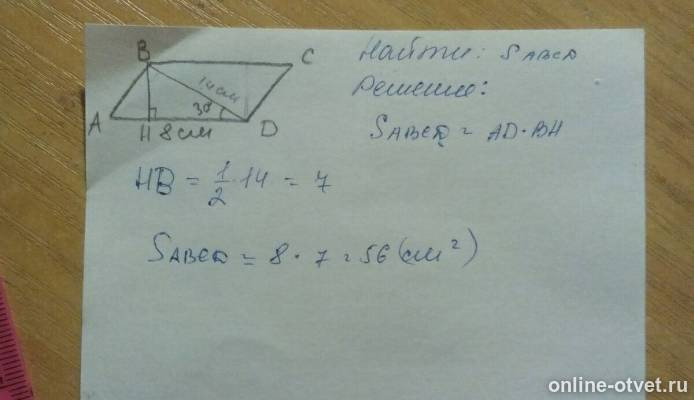 B
C
14 см
30
A
H 8 см
D
Найти: SABCD
Решение:
SABCD = AD·BH
HB = 1/2·14 = 7
SABCD = 8·7=56 (см²)
online-otvet.ru